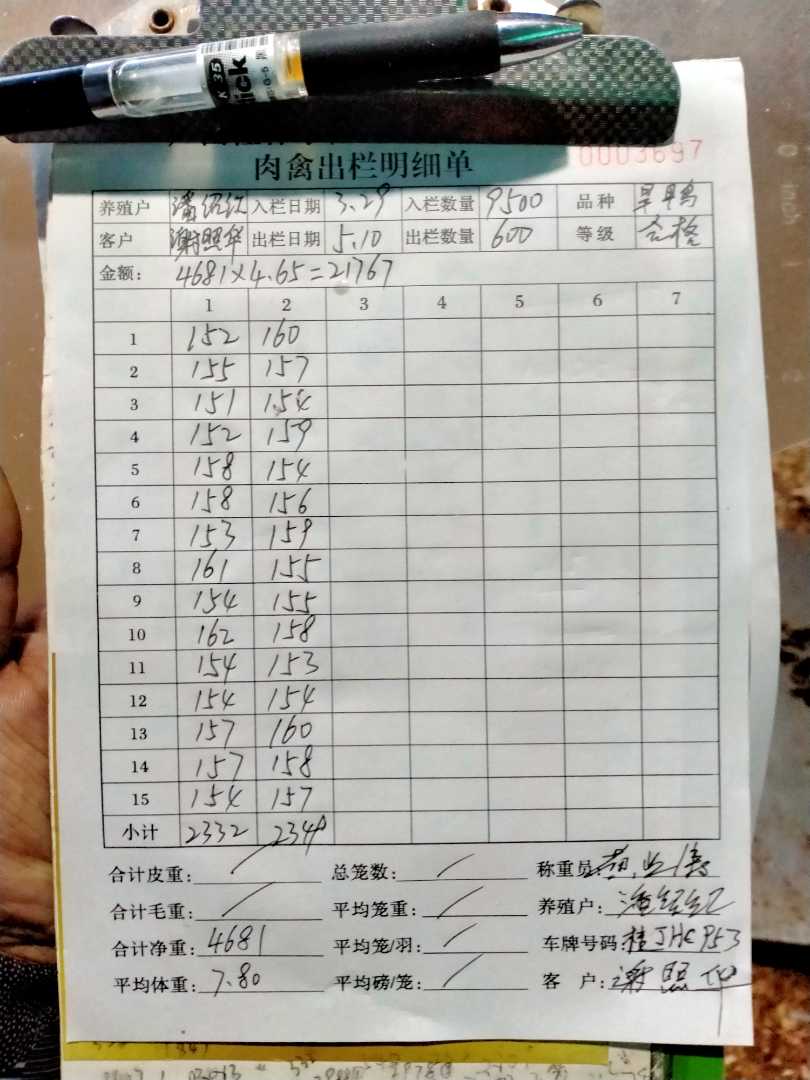 K-35
肉禽出栏明细单
0003697
养殖户 潘绍红 入栏日期 3.29 入栏数量 9500 品种 旱鸭
客户 谢照华 出栏日期 5.10 出栏数量 600 等级 合格
金额: 4681×4.65=21767
1 2 3 4 5 6 7
1 152 160
2 155 157
3 151 154
4 152 159
5 158 154
6 158 156
7 153 159
8 161 155
9 154 155
10 162 158
11 154 153
12 154 154
13 157 160
14 157 158
15 154 157
小计 2332 2349
合计皮重: / 总笼数: / 称重员
合计毛重: / 平均笼重: / 养殖户:
合计净重: 4681 平均笼/羽: / 车牌号码 桂JHC953
平均体重: 7.80 平均磅/笼: / 客 户: 谢照华